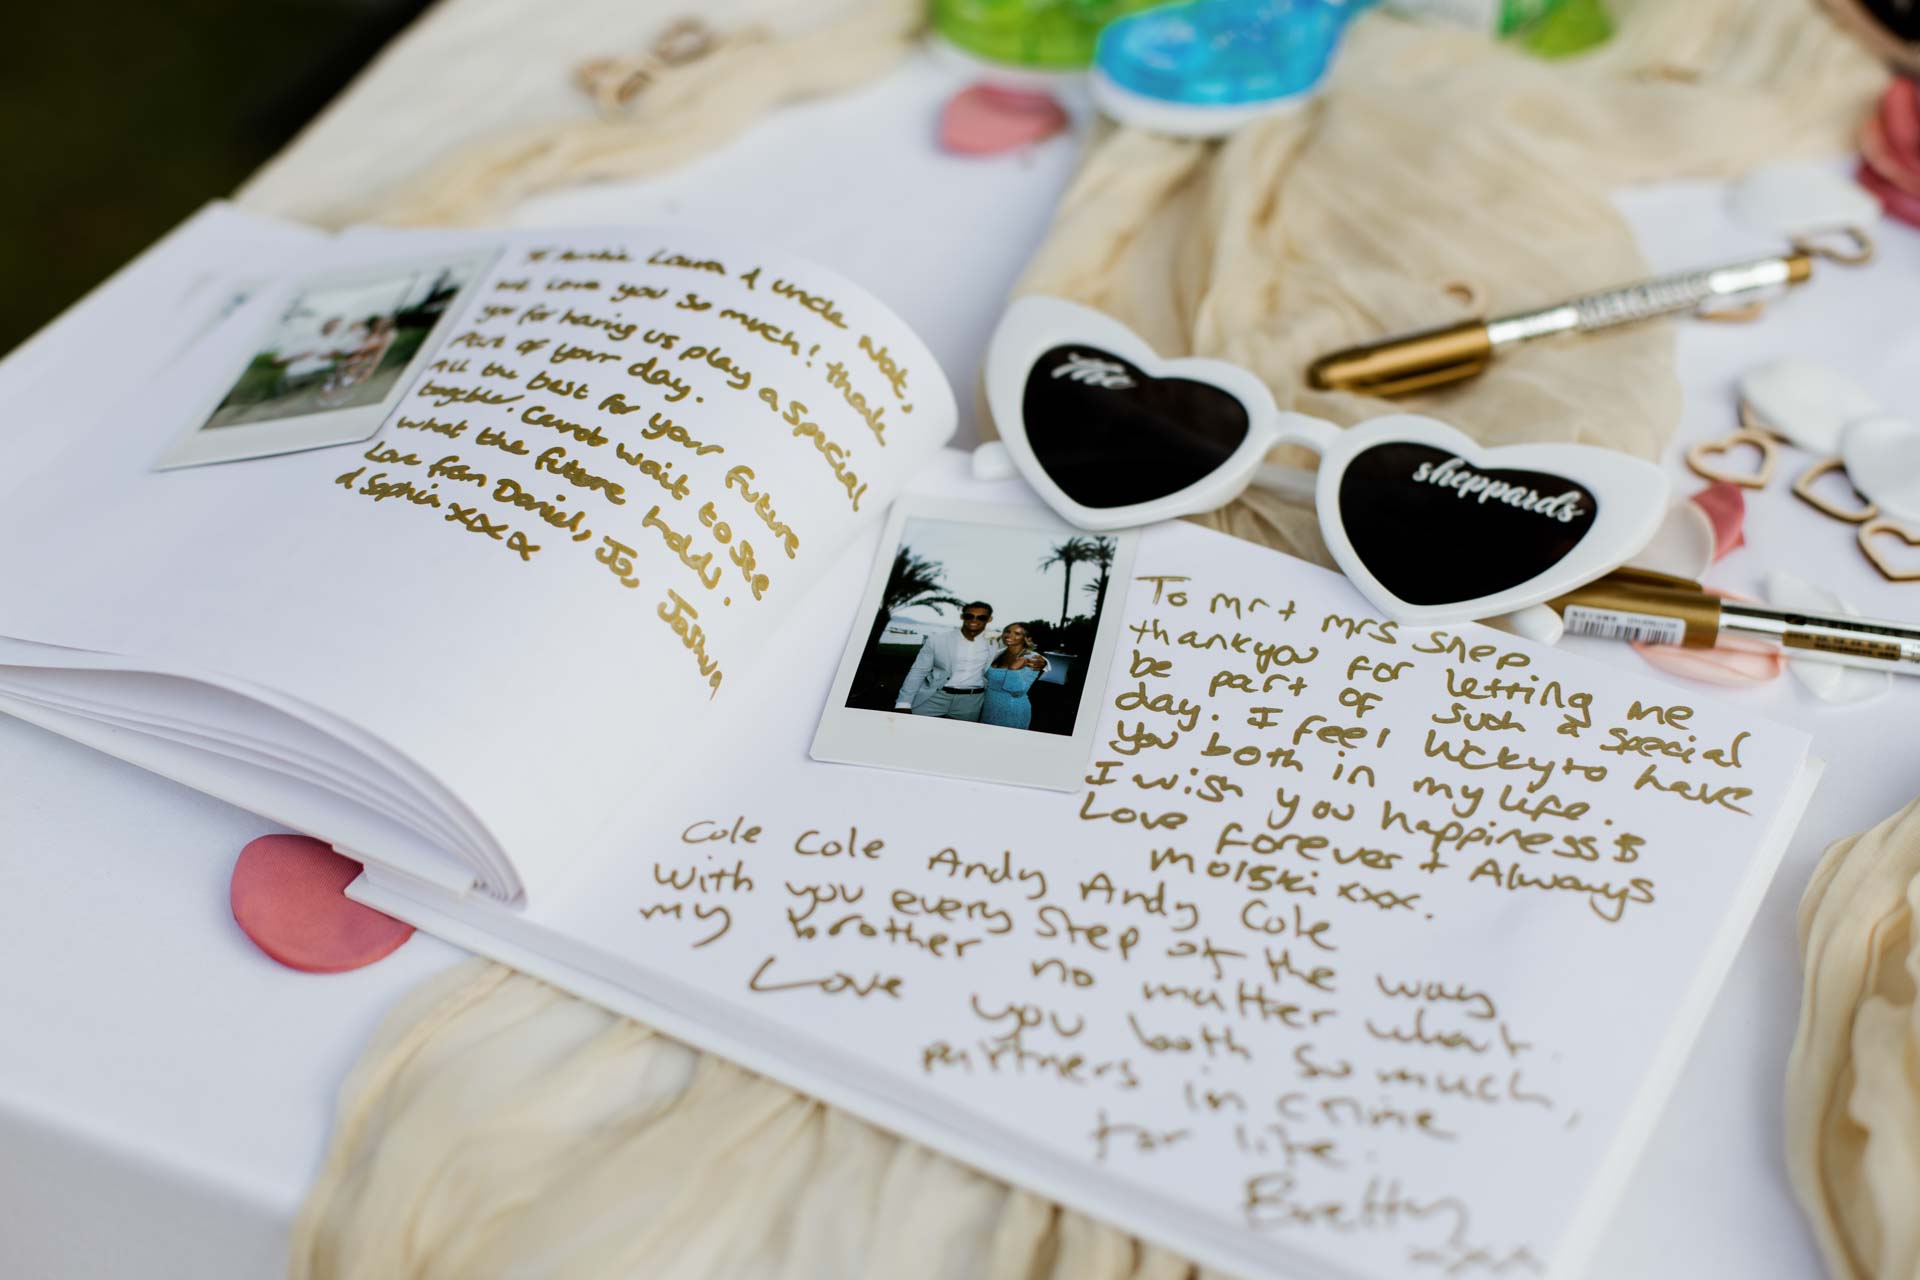 To Auntie Laura & uncle Nat,
we love you so much! thank
you for having us play a special
part of your day.
All the best for your future
together. Cannot wait to see
what the future holds.
Love from Daniel, Jo, Joshua
& Sophia xxxx
The
sheppards
To Mr + Mrs Shep
thankyou for letting me
be part of such a special
day. I feel lucky to have
you both in my life.
I wish you happiness &
Love Forever + Always
Molski xxx.
Cole Cole Andy Andy Cole
with you every step of the way
my brother no matter what.
Love you both so much,
partners in crime
for life.
Bretty
xxx